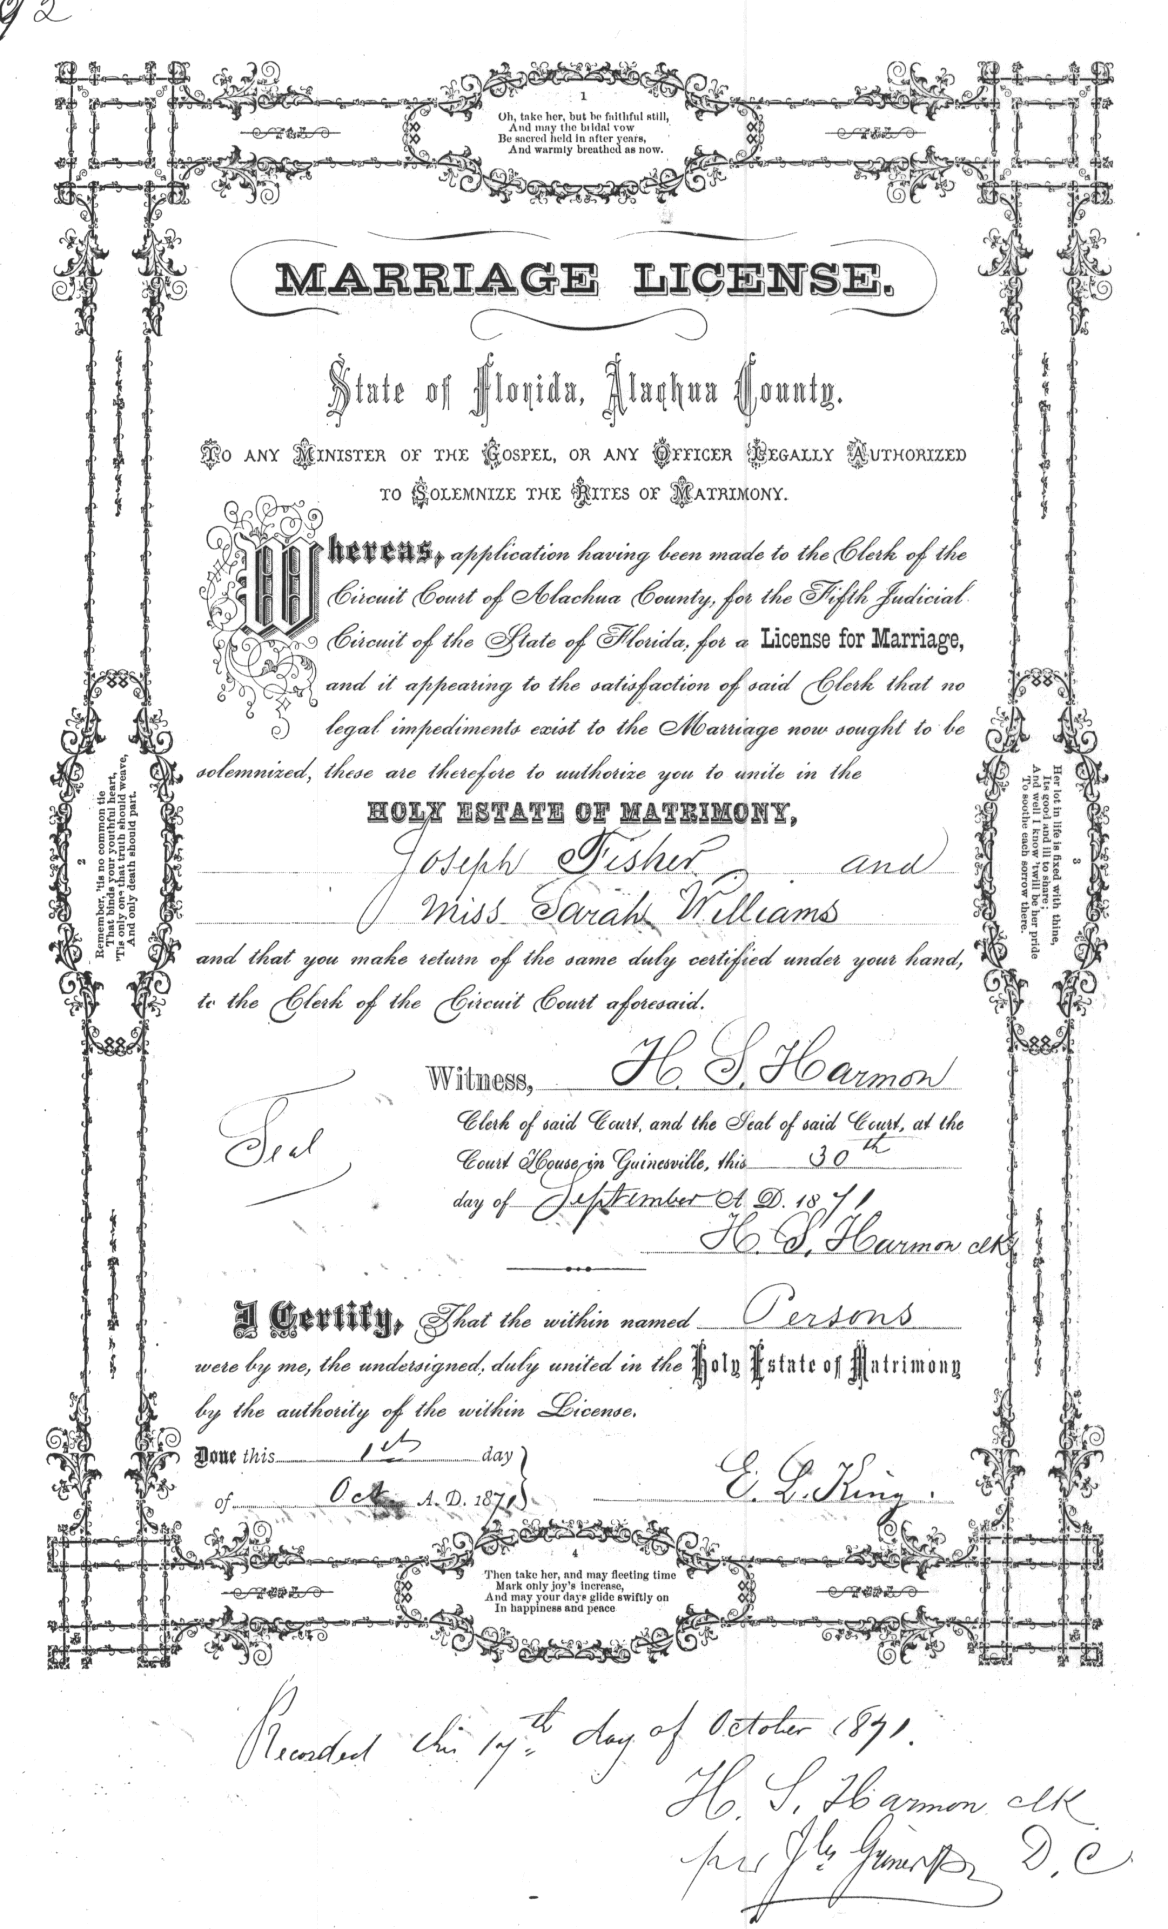 92
1
Oh, take her, but be faithful still,
And may the bridal vow
Be sacred held in after years,
And warmly breathed as now.
MARRIAGE LICENSE.
State of Florida, Alachua County.
TO ANY MINISTER OF THE GOSPEL, OR ANY OFFICER LEGALLY AUTHORIZED
TO SOLEMNIZE THE RITES OF MATRIMONY.
Whereas, application having been made to the Clerk of the
Circuit Court of Alachua County, for the Fifth Judicial
Circuit of the State of Florida, for a License for Marriage,
and it appearing to the satisfaction of said Clerk that no
legal impediments exist to the Marriage now sought to be
solemnized, these are therefore to authorize you to unite in the
HOLY ESTATE OF MATRIMONY,
Joseph Fisher and
Miss Sarah Williams
and that you make return of the same duly certified under your hand,
to the Clerk of the Circuit Court aforesaid.
Witness, H. S. Harmon
Clerk of said Court, and the Seal of said Court, at the
Court House in Gainesville, this 30th
day of September A. D. 1871
Seal
H. S. Harmon clk
I Certify, That the within named Persons
were by me, the undersigned, duly united in the Holy Estate of Matrimony
by the authority of the within License.
Done this 1st day
of Oct A. D. 1871
E. L. King.
2
Remember, 'tis no common tie
That binds your youthful heart,
'Tis only one that truth should weave,
And only death should part.
3
Her lot in life is fixed with thine,
Its good and ill to share;
And well I know 'twill be her pride
To soothe each sorrow there.
4
Then take her, and may fleeting time
Mark only joy's increase,
And may your days glide swiftly on
In happiness and peace
Recorded this 17th day of October 1871.
H. S. Harmon clk
per D. C